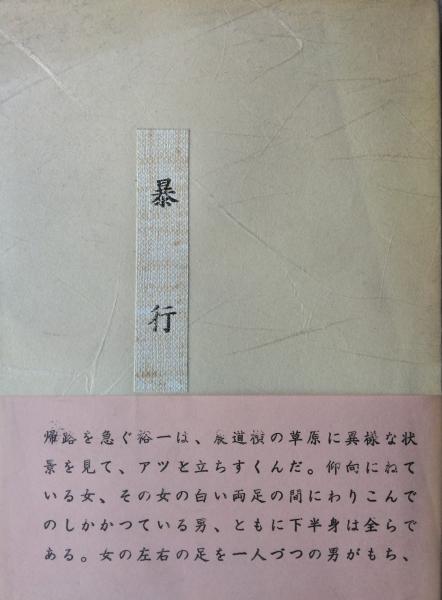 暴行
帰路を急ぐ裕一は、農道横の草原に異様な状
景を見て、アツと立ちすくんだ。仰向にねて
いる女、その女の白い両足の間にわりこんで
のしかかつている男、ともに下半身は全らで
ある。女の左右の足を一人づつの男がもち、